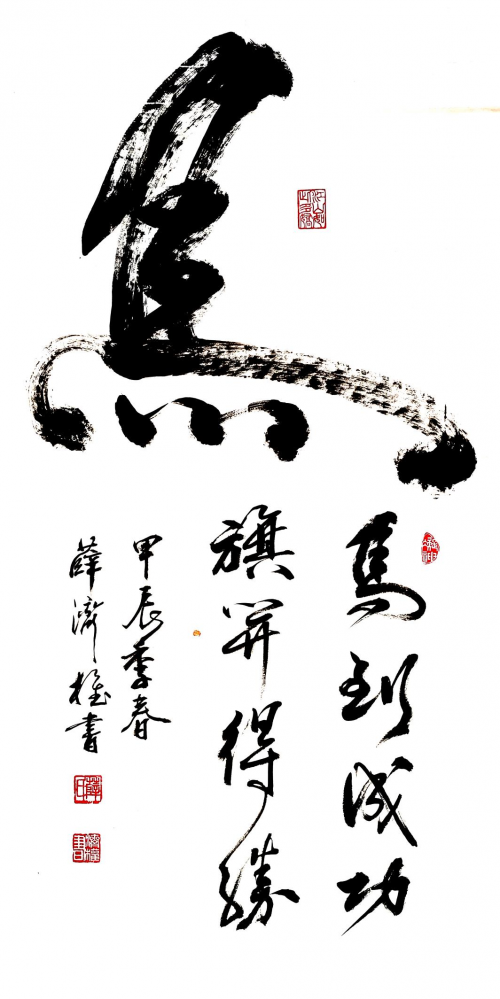 馬
馬到成功
旗開得勝
甲辰季春
薛濟權書